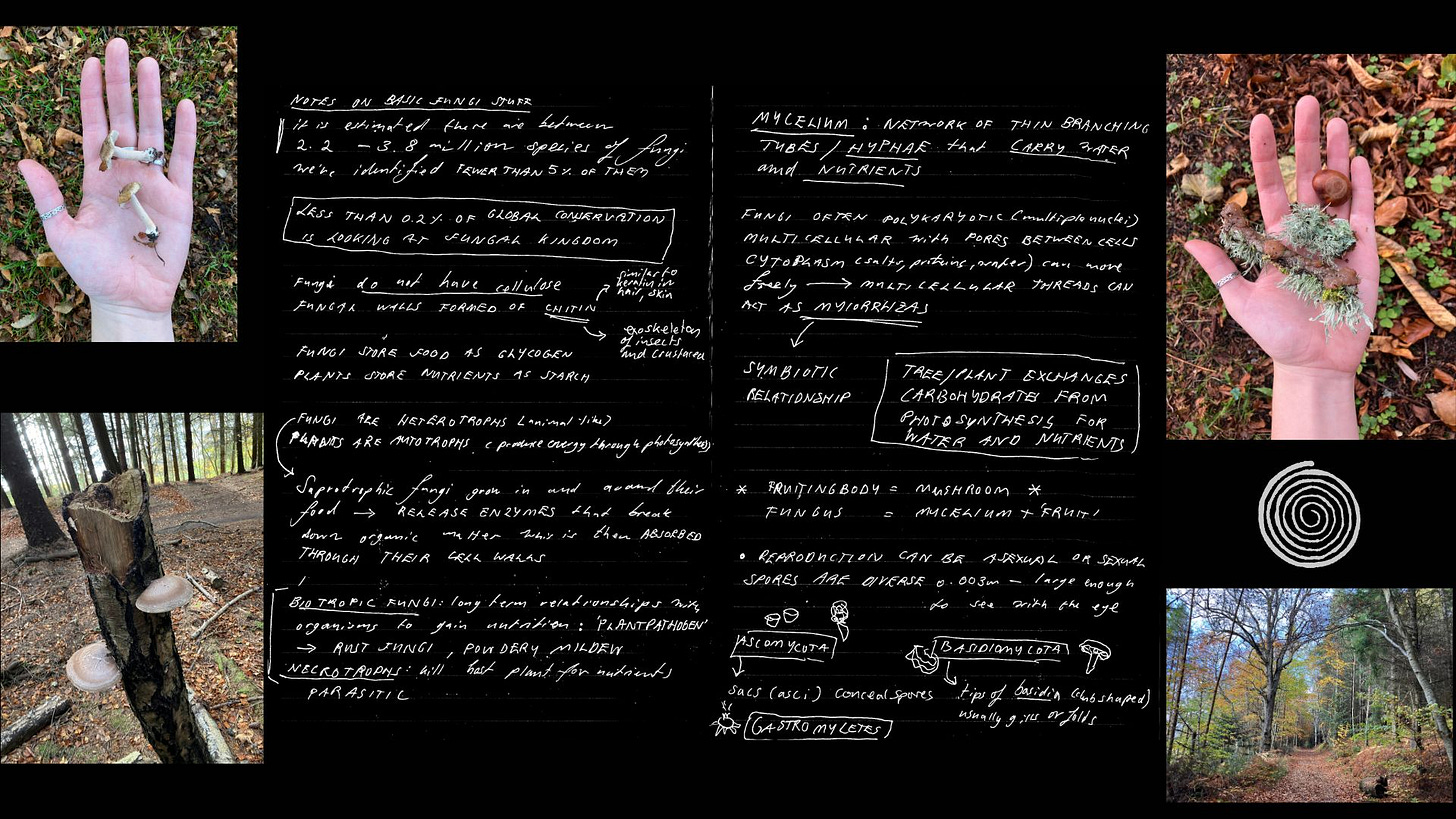 NOTES ON BASIC FUNGI STUFF
it is estimated there are between
2.2 - 3.8 million species of fungi
we've identified FEWER THAN 5% OF THEM
LESS THAN 0.2% OF GLOBAL CONSERVATION
IS LOOKING AT FUNGAL KINGDOM
Fungi do not have cellulose
FUNGAL WALLS FORMED OF CHITIN
similar to
keratin in
hair, skin
exoskeleton
of insects
and crustacea
FUNGI STORE FOOD AS GLYCOGEN
PLANTS STORE NUTRIENTS AS STARCH
FUNGI ARE HETEROTROPHS (animal-like)
PLANTS ARE AUTOTROPHS (produce energy through photosynthesis)
Saprotrophic fungi grow in and around their
food → RELEASE ENZYMES that break
down organic matter is then ABSORBED
THROUGH THEIR CELL WALLS
BIOTROPIC FUNGI: long term relationships with
organisms to gain nutrition: 'PLANT PATHOGEN'
→ RUST FUNGI, POWDERY MILDEW
NECROTROPHS: kill host plant for nutrients
PARASITIC
MYCELIUM: NETWORK OF THIN BRANCHING
TUBES/HYPHAE that CARRY WATER
and NUTRIENTS
FUNGI OFTEN POLYKARYOTIC (multiple nuclei)
MULTICELLULAR with PORES BETWEEN CELLS
CYTOPLASM (salts, proteins, water) can move
freely → MULTICELLULAR THREADS CAN
ACT AS MYIORRHIZAS
SYMBIOTIC
RELATIONSHIP
TREE/PLANT EXCHANGES
CARBOHYDRATES FROM
PHOTOSYNTHESIS FOR
WATER AND NUTRIENTS
* FRUITING BODY = MUSHROOM *
FUNGUS = MYCELIUM + FRUIT!
• REPRODUCTION CAN BE ASEXUAL OR SEXUAL
SPORES ARE DIVERSE 0.003m - large enough
to see with the eye
ASCOMYCOTA
BASIDIOMYCOTA
sacs (asci) conceal spores
tips of basidia (club shaped)
usually gills or folds
GASTROMYCETES